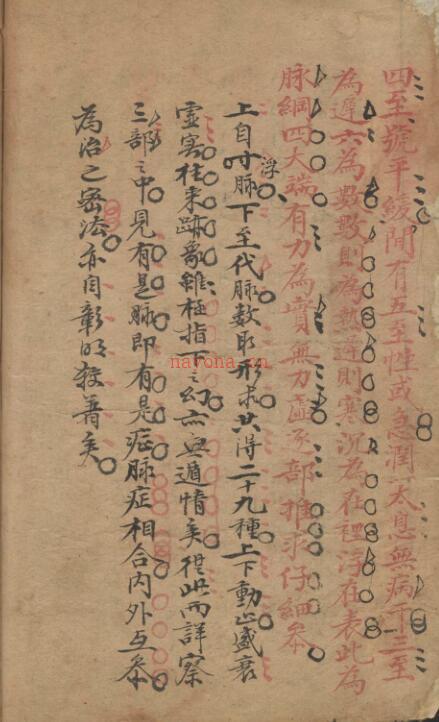 四至號平緩閒有五至性或急潤太息無病三至
為遲六為數數則為熱遲則寒沉為在裡浮在表此為
脉綱四大端有力為實無力虛逐部推求仔細叅
上自浮脉下至代脉数取形求共得二十九種上下動止盛衰
虛寔往来跡象雖極指下之幻亦無遁情矣從此而詳察
三部之中見有是脉即有是症脉症相合内外互叅
為治之密法亦自彰明較著矣